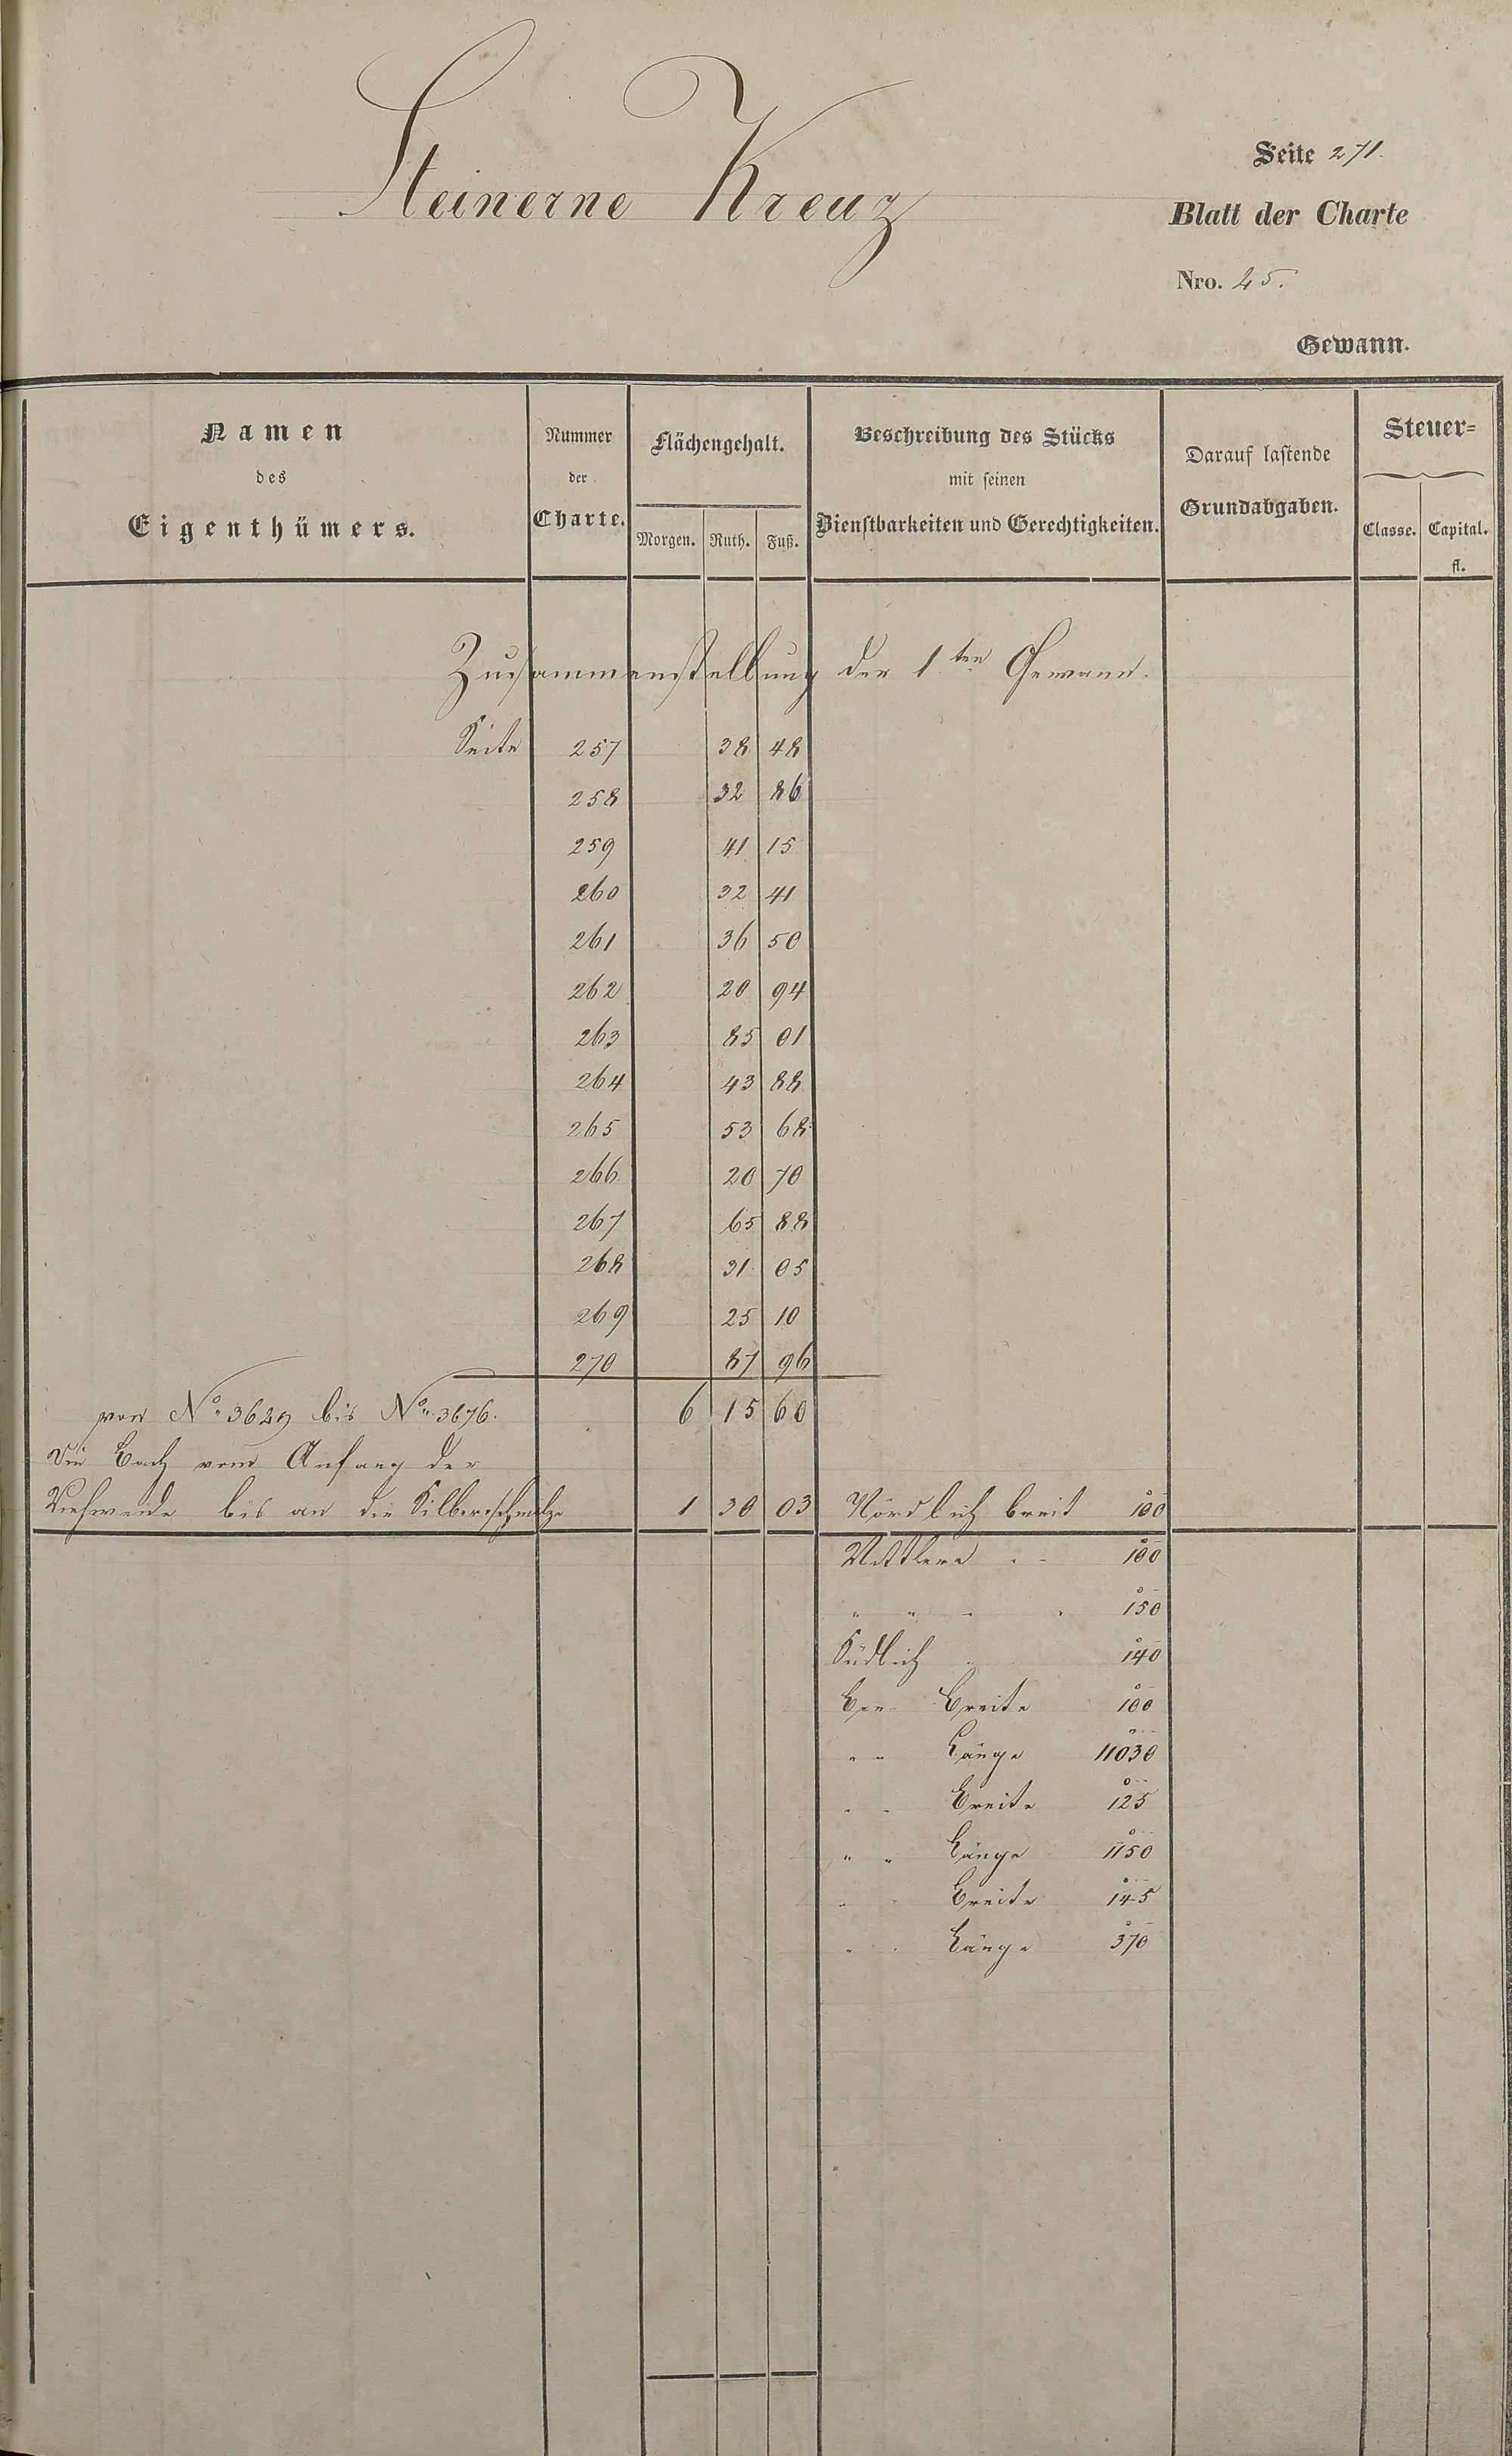 Steinerne Kreuz
Seite 271.
Blatt der Charte
Nro. 25.
Gewann.
Namen des Eigenthümers.
Nummer der Charte.
Flächengehalt.
Morgen. Ruth. Fuß.
Beschreibung des Stücks mit seinen Dienstbarkeiten und Gerechtigkeiten.
Darauf lastende Grundabgaben.
Steuer=
Classe. Capital.
fl.
Zusammenstellung der 1ten Gewann.
Seite 257 38 48
258 32 86
259 41 15
260 32 41
261 36 50
262 20 94
263 85 01
264 43 88
265 53 68
266 20 70
267 65 88
268 31 05
269 25 10
270 87 96
von No. 3629 bis No. 3676. 6 15 60
Die Bach vom Anfang der
Viehweide bis an die Silberschmelze 1 30 03 Nördlich breit 100
Mittlere " " 100
" " " " 150
Südlich " 140
Ber. Breite 100
" " Länge 11030
" " Breite 125
" " Länge 1150
" " Breite 145
" " Länge 370